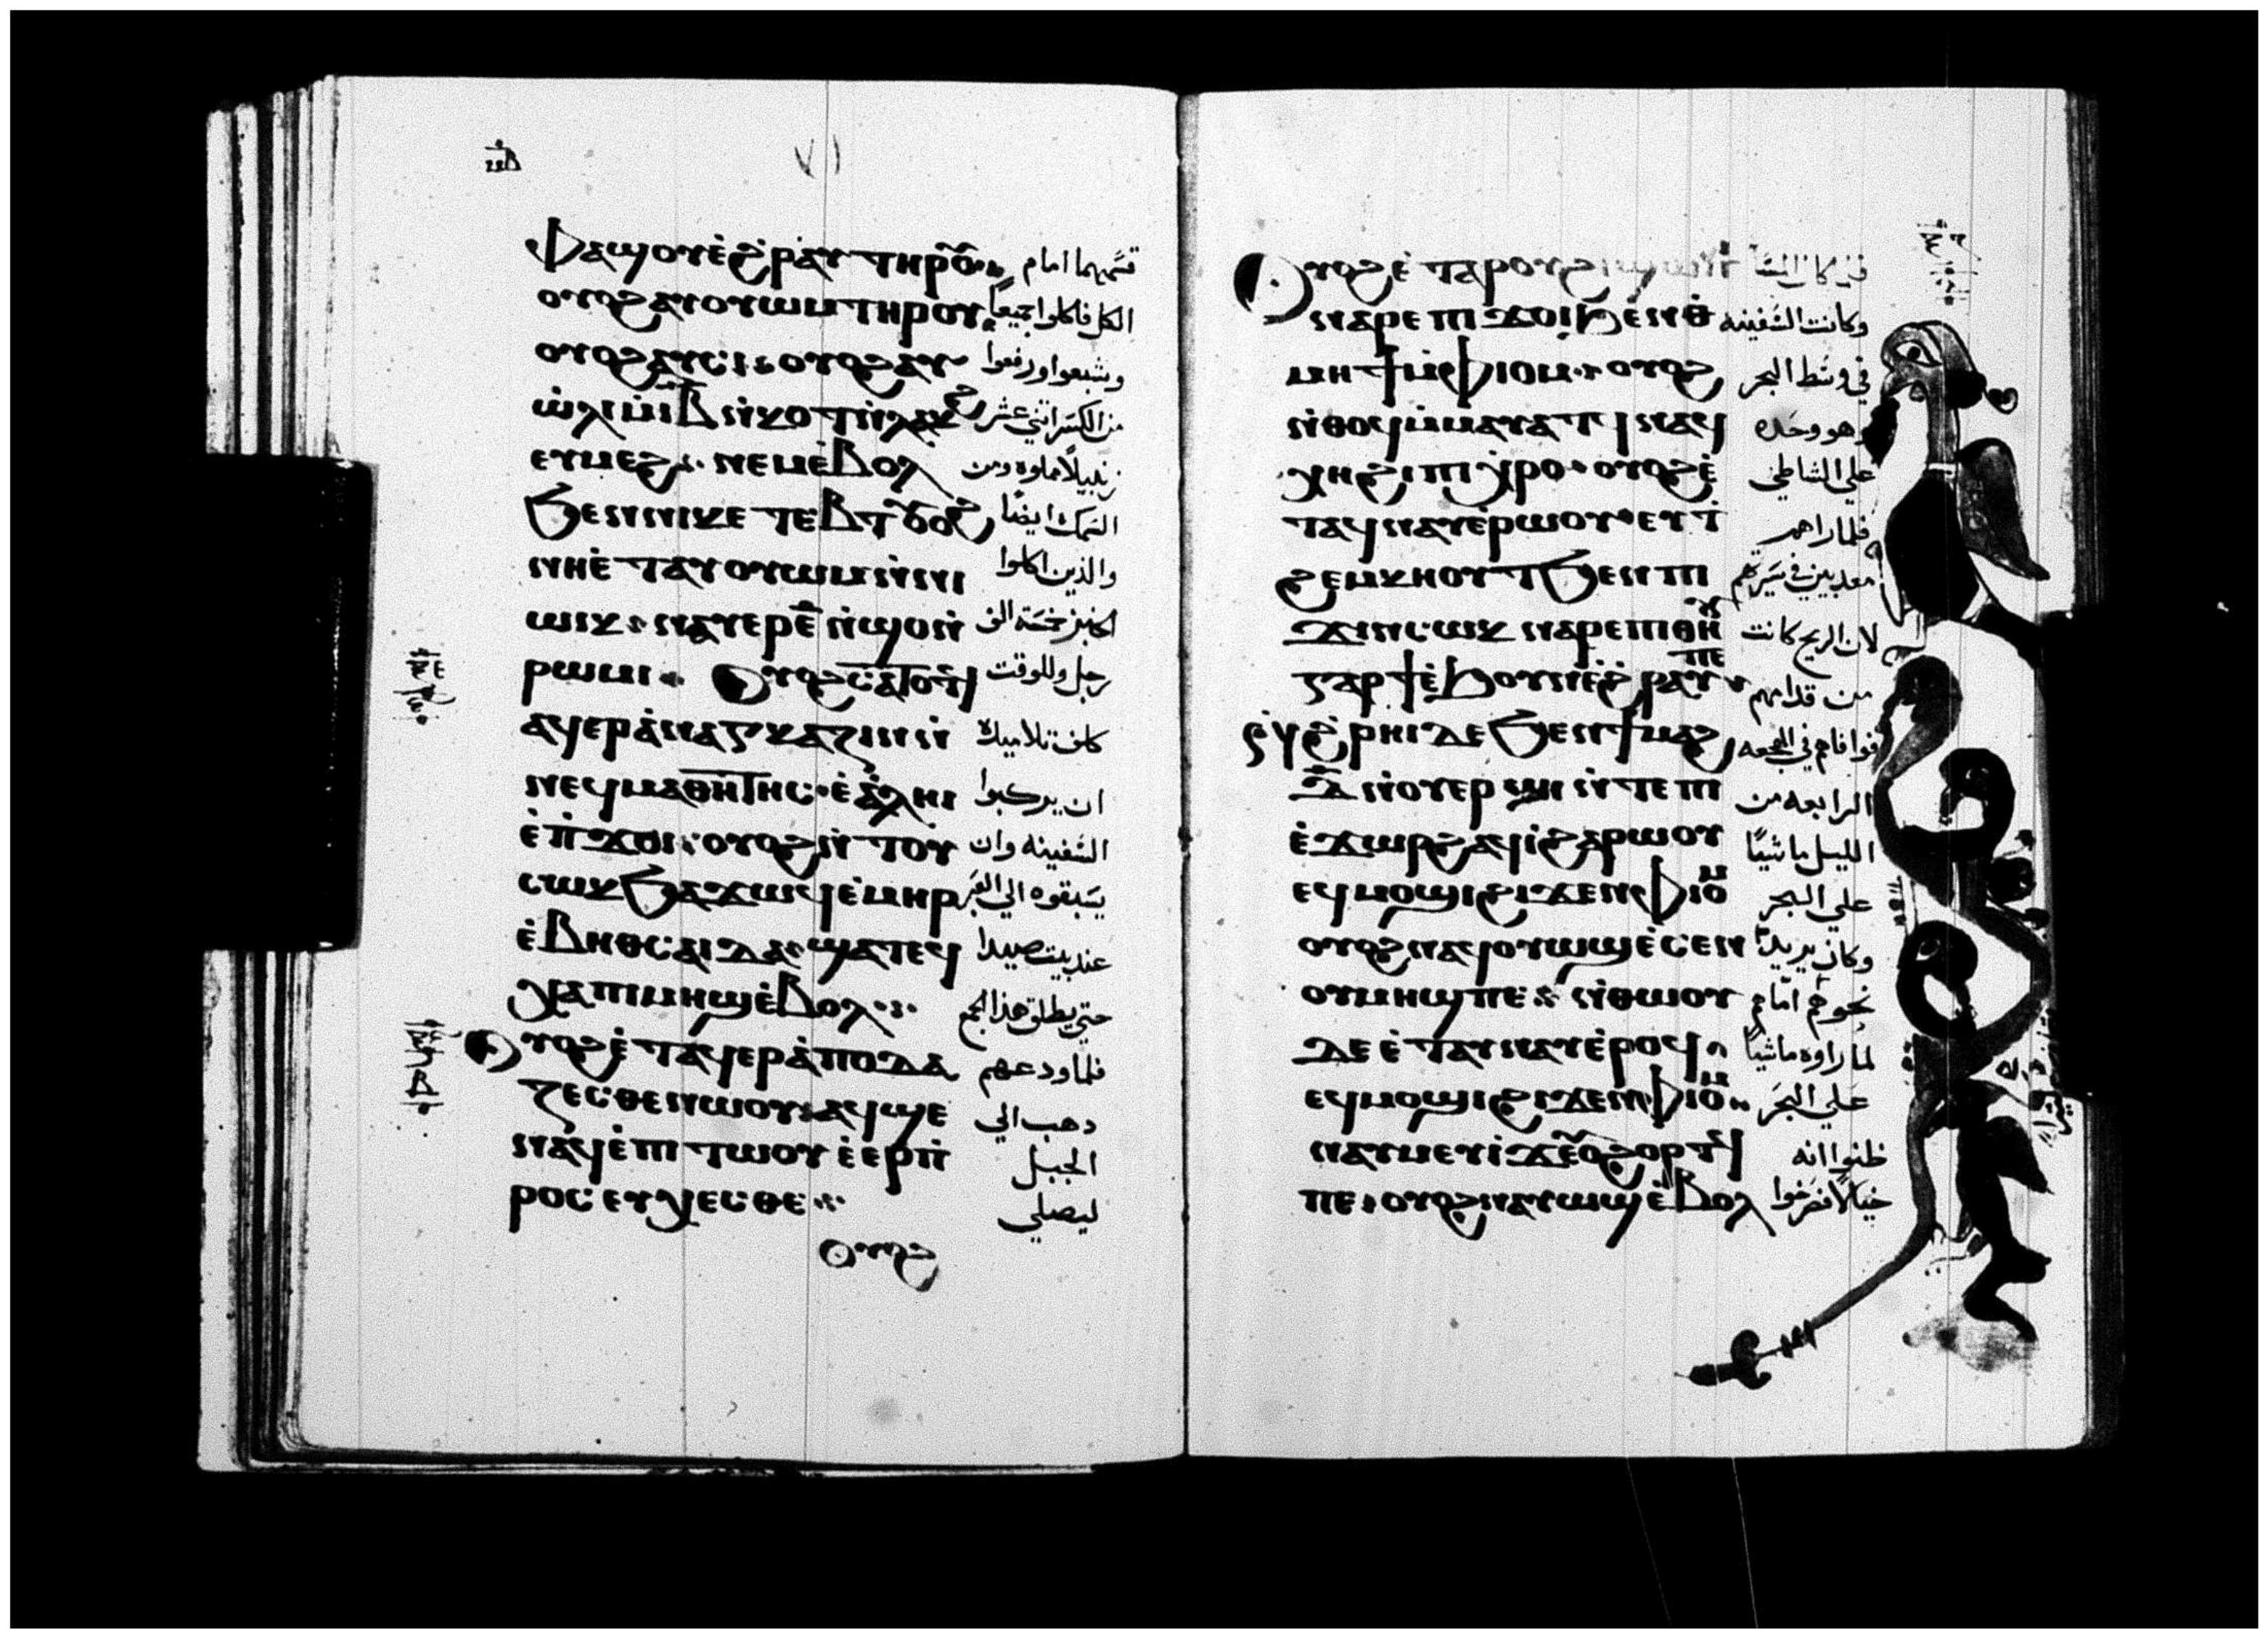 ⲫⲁϣⲟⲩⲉ̀ϩⲣ̀ⲁⲩ ⲧⲏⲣⲟⲩ قسمهما امام
ⲟⲩⲟϩⲁⲩⲟⲩⲱⲙ ⲧⲏⲣⲟⲩ الكل فاكلوا جميعا
ⲟⲩⲟϩⲁⲩⲥⲓ ⲟⲩⲟϩⲁⲩ وشبعوا ورفعوا
ⲱ̀ⲗⲓⲙ̀ⲓⲃ ⲛ̀ⲕⲟⲧ ⲛ̀ⲗⲁⲕϩ من الكسر اثني عشر
ⲉⲩⲙⲉϩ ⲛⲉⲙⲉ̀ⲃⲟⲗ زنبيلا مملوه ومن
ϧⲉⲛⲛⲓⲕⲉ ⲧⲉⲃⲧ السمك ايضا
ⲛⲏⲉ̀ ⲧⲁⲩⲟⲩⲱⲙⲛ̀ⲛⲓ والذين اكلوا
ⲱⲓⲕ ⲛⲁⲩⲉⲣⲉ̅ ⲛ̀ϣⲟⲛ̀ الخبز خمسة الف
ⲣⲱⲙⲓ ⲟⲩⲟϩⲥⲁⲧⲟⲧϥ رجل وللوقت
ⲁϥⲉⲣⲁ̀ⲛⲁⲅⲕⲁⲍⲓⲛⲛ̀ كلف تلاميده
ⲛⲉϥⲙⲁⲑⲏⲧⲏⲥ ⲉ̀ⲁ̀ⲗⲏⲓ ان يركبوا
ⲉ̀ⲡ̀ϫⲟⲓ ⲟⲩⲟϩⲛ̀ ⲧⲟⲩ السفينه وان
ⲥⲱⲕϧⲁϫⲱϥⲉ̀ⲙⲏⲣ يسبقوه الي العبر
ⲉ̀ⲃⲏⲑⲥⲁⲓⲇⲁ ϣⲁⲧⲉϥ عند بيت صيدا
ⲭⲁⲡⲓⲙⲏϣⲉ̀ⲃⲟⲗ حتي يطلق هذا الجمع
ⲟⲩⲟϩⲉ̀ ⲧⲁϥⲉⲣⲁ̀ⲡⲟⲇⲁ فلما ودعهم
ⲍⲉⲥⲑⲉⲛⲱⲟⲩ ⲁϥϣⲉ دهب الي
ⲛⲁϥⲉ̀ⲡⲓ ⲧⲱⲟⲩ ⲉ̀ⲉⲣⲡ̀ الجبل
ⲣⲟⲥⲉⲩⲭⲉⲥⲑⲉ ليصلي
ⲟⲩⲟϩ
ⲟⲩⲟϩⲉ̀ ⲧⲁⲣⲟⲩϩⲓ
ⲛⲁⲣⲉ ⲡⲓ ϫⲟⲓ ϧⲉⲛⲑ وكانت السفينه
ⲙⲏϯⲙ̀ⲫⲓⲟⲙ ⲟⲩⲟϩ في وسط البحر
ⲛ̀ⲑⲟϥⲙ̀ⲙⲁⲩⲁⲧϥ ⲛⲁϥ وهو وحده
ⲭⲏϩⲓ ⲡⲓ ⲭⲣⲟ ⲟⲩⲟϩⲉ̀ علي الشاطي
ⲧⲁϥⲛⲁⲩⲉ̀ⲣⲱⲟⲩ ⲉⲩ ⲧ̀ فلما راهم
ϩⲉⲙⲕⲏⲟⲩⲧ ϧⲉⲛ ⲡⲓ معدبين في سيرتهم
ϫⲓⲛⲥⲱⲕ ⲛⲁⲣⲉ ⲡⲓⲑⲏⲟⲩ لان الريح كانت
ⲅⲁⲣϯⲉ̀ϧⲟⲩⲛⲉ̀ϩ̀ⲣⲁⲩ ⲡⲉ من قدامهم
ⲣ̀ⲅ ϩ̀ⲣⲏⲓ ⲇⲉ ϧⲉⲛϯⲙⲁϩ فوافاهم في الهجعه
ⲇ̅ ⲛ̀ⲟⲩⲉⲣϣⲓ ⲛ̀ⲧⲉ ⲡⲓ الرابعه من
ⲉ̀ϫⲱⲣϩ ⲁϥⲓ̀ϩⲁⲣⲱⲟⲩ الليل ماشيا
ⲉϥⲙⲟϣⲓ ϩⲓϫⲉⲛ ⲫⲓⲟⲙ علي البحر
ⲟⲩⲟϩⲛⲁϥⲟⲩⲱϣⲉ̀ⲥⲉⲛ وكان يريد
ⲟⲩⲙⲏϣ ⲡⲉ ⲛ̀ⲑⲱⲟⲩ نحوهم اما هم
ⲇⲉ ⲉ̀ ⲧⲁⲩⲛⲁⲩⲉ̀ⲣⲟϥ لما راوه ماشيا
ⲉϥⲙⲟϣⲓ ϩⲓϫⲉⲛ ⲫⲓⲟⲙ علي البحر
ⲛⲁⲩⲙⲉⲩⲓ ϫⲉⲟⲩϩⲟⲣⲧϥ ظنوا انه
ⲡⲉ ⲟⲩⲟϩⲛⲁⲩⲱϣⲉ̀ⲃⲟⲗ خيالا فصرخوا